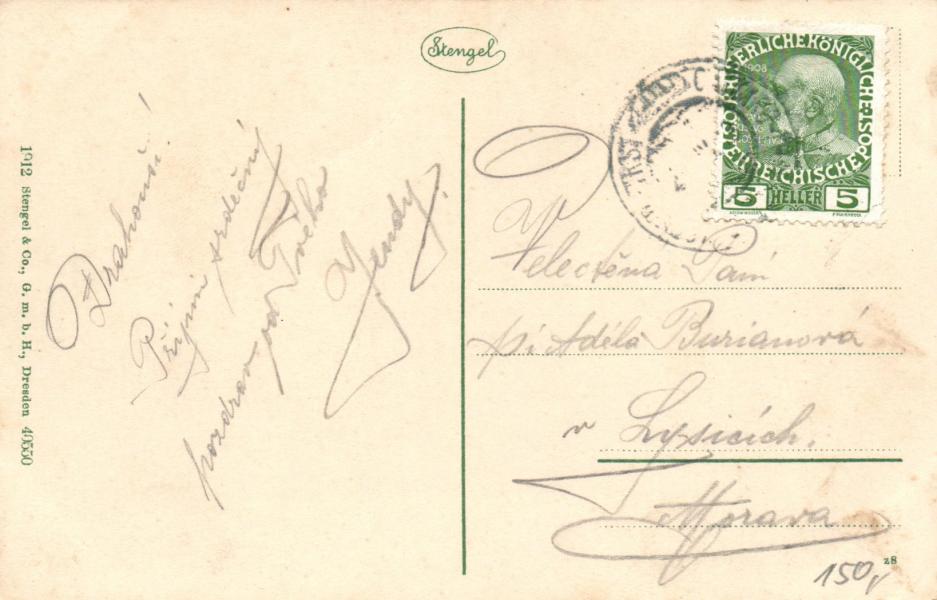 Stengel
1912 Stengel & Co., G. m. b. H., Dresden 40550
Drahouši!
Přijmi srdečný
pozdrav od Tvého
Jendy.
1908
KAISERLICHE KÖNIGLICHE
ÖSTERREICHISCHE POST
5 HELLER 5
TRST
Velectěna Paní
pí Adéla Burianová
v Lysicích.
Morava
z8
150,-